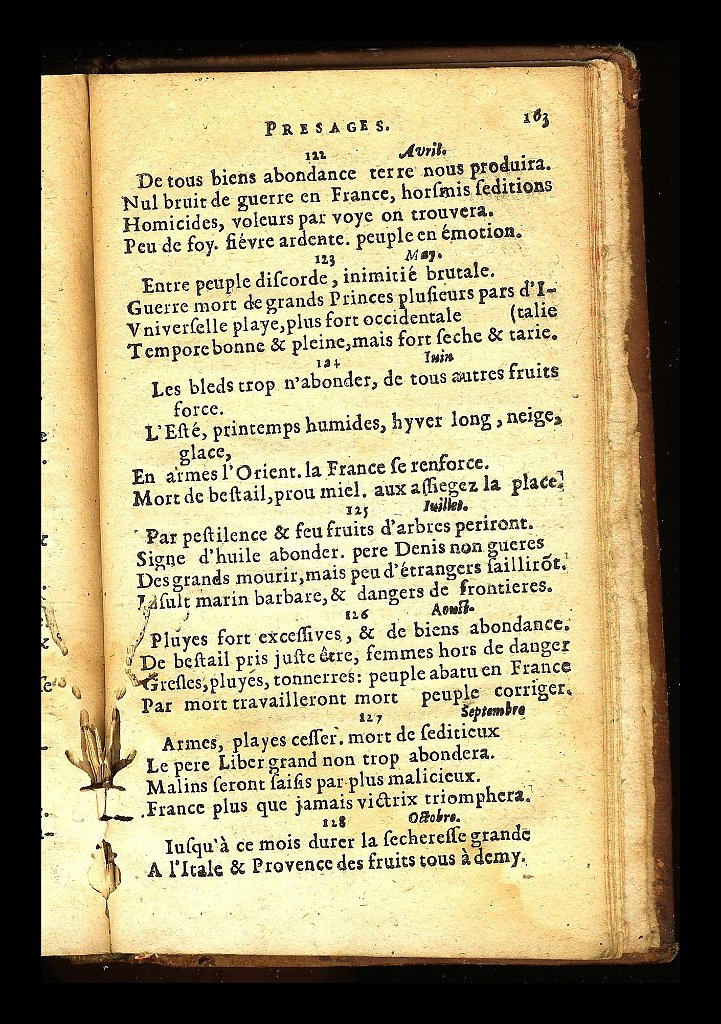 PRESAGES. 163
122 Avril.
De tous biens abondance terre nous produira.
Nul bruit de guerre en France, horſmis ſeditions
Homicides, voleurs par voye on trouvera.
Peu de foy. fiévre ardente. peuple en émotion.
123 May.
Entre peuple diſcorde, inimitié brutale.
Guerre mort de grands Princes pluſieurs pars d'I-
Vniverſelle playe, plus fort occidentale (talie
Tempore bonne & pleine, mais fort ſeche & tarie.
124 Iuin
Les bleds trop n'abonder, de tous autres fruits
force.
L'Eſté, printemps humides, hyver long, neige,
glace,
En armes l'Orient. la France ſe renforce.
Mort de beſtail, prou miel. aux aſſiegez la place.
125 Iuillet.
Par peſtilence & feu fruits d'arbres periront.
Signe d'huile abonder. pere Denis non gueres
Des grands mourir, mais peu d'étrangers ſaillirõt.
Inſult marin barbare, & dangers de frontieres.
126 Aouſt.
Pluyes fort exceſſives, & de biens abondance.
De beſtail pris juſte être, femmes hors de danger
Greſles, pluyes, tonnerres: peuple abatu en France
Par mort travailleront mort peuple corriger.
127 Septembre
Armes, playes ceſſer. mort de ſeditieux
Le pere Liber grand non trop abondera.
Malins ſeront ſaiſis par plus malicieux.
France plus que jamais victrix triomphera.
128 Octobre.
Iuſqu'à ce mois durer la ſechereſſe grande
A l'Itale & Provence des fruits tous à demy.